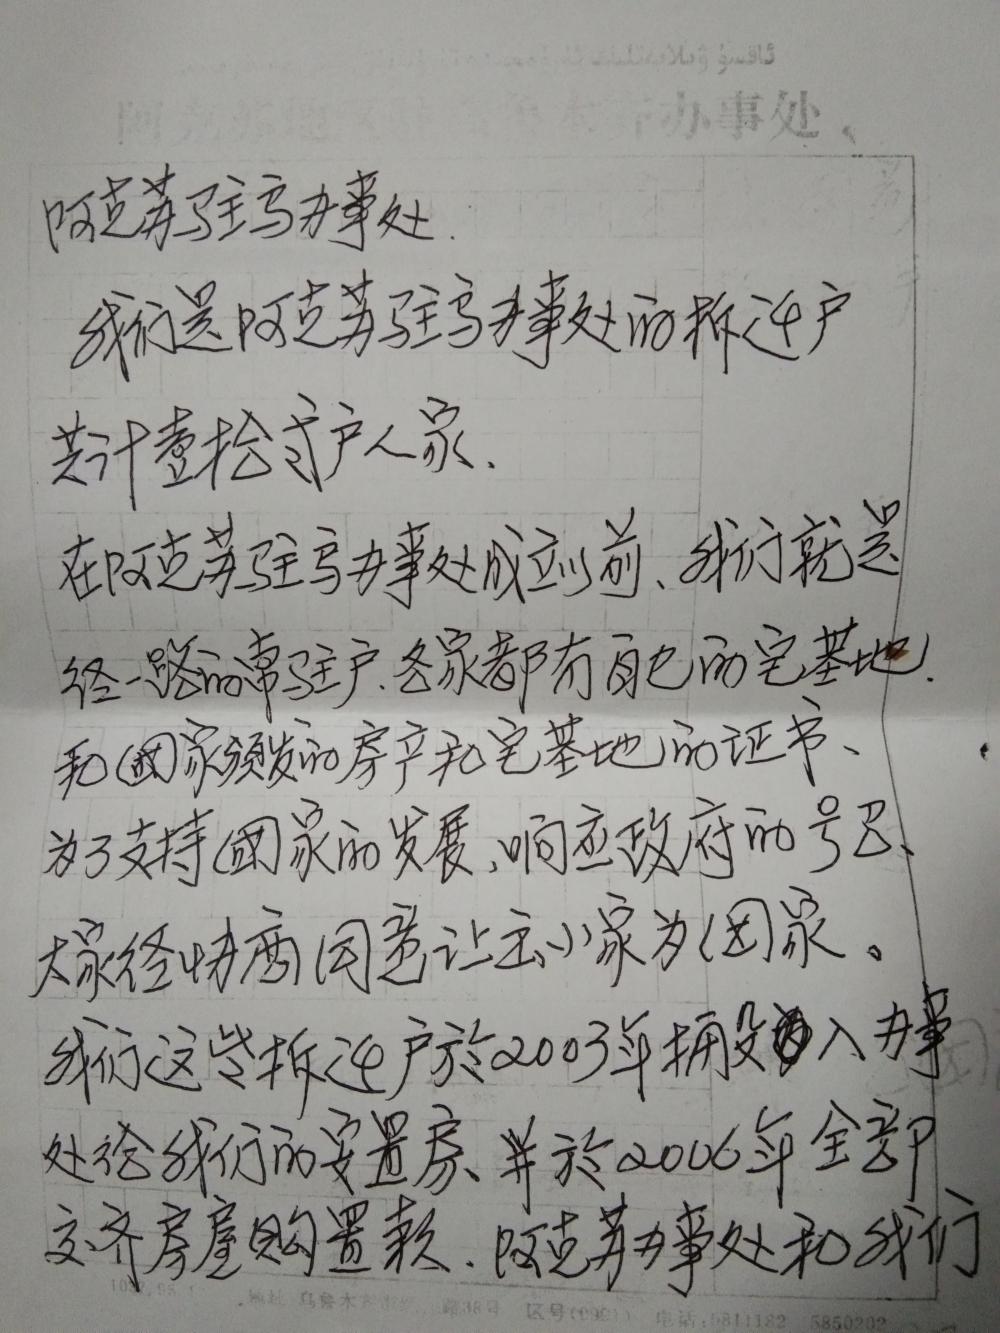 办事处
阿克苏驻乌办事处.
我们是阿克苏驻乌办事处的拆迁户
共计壹拾弍户人家.
在阿克苏驻乌办事处成立以前、我们就是
经一路的常驻户.各家都有自已的宅基地.
和国家颁发的房产和宅基地的证书、
为了支持国家的发展、响应政府的号召、
大家经协商同意让出小家为国家。
我们这些拆迁户於2003年搬入办事
处给我们的安置房、并於2006年全部
交齐房屋购置款.阿克苏办事处和我们
乌鲁木 路38号 区号 电话:5811182 5850202